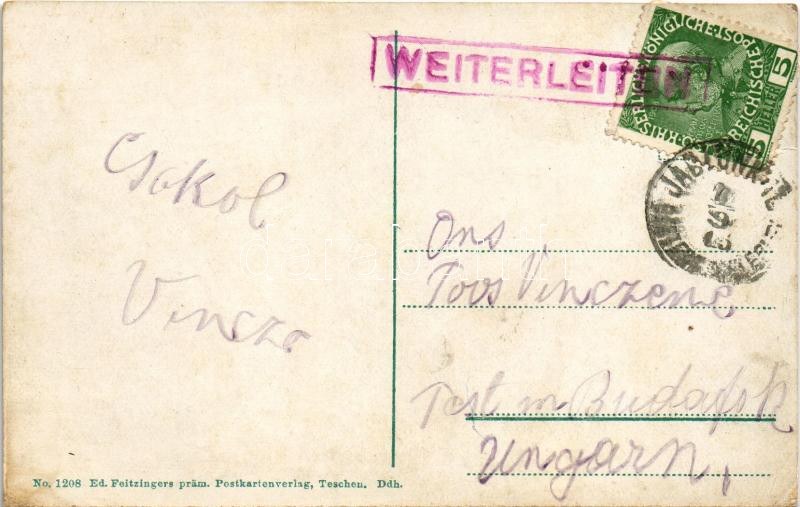 WEITERLEITEN
KAISERLICHE KÖNIGLICHE ÖSTERREICHISCHE POST
5 HELLER 5
JABLUNK
Csokol
Vincze
Ons
Toos Vinczene
Pest m Budafok
Ungarn,
No. 1208 Ed. Feitzingers präm. Postkartenverlag, Teschen. Ddh.